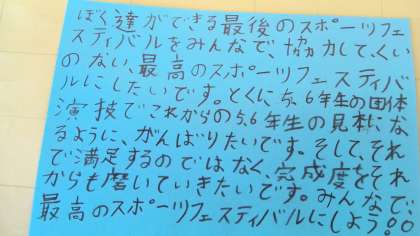 ぼく達ができる最後のスポーツフェ
スティバルをみんなで、協力して、くい
のない、最高のスポーツフェスティバ
ルにしたいです。とくに5、6年生の団体
演技でこれからの5、6年生の見本にな
るように、がんばりたいです。そして、それ
で満足するのではなく、完成度をそれ
からも磨いていきたいです。みんなで、
最高のスポーツフェスティバルにしよう。